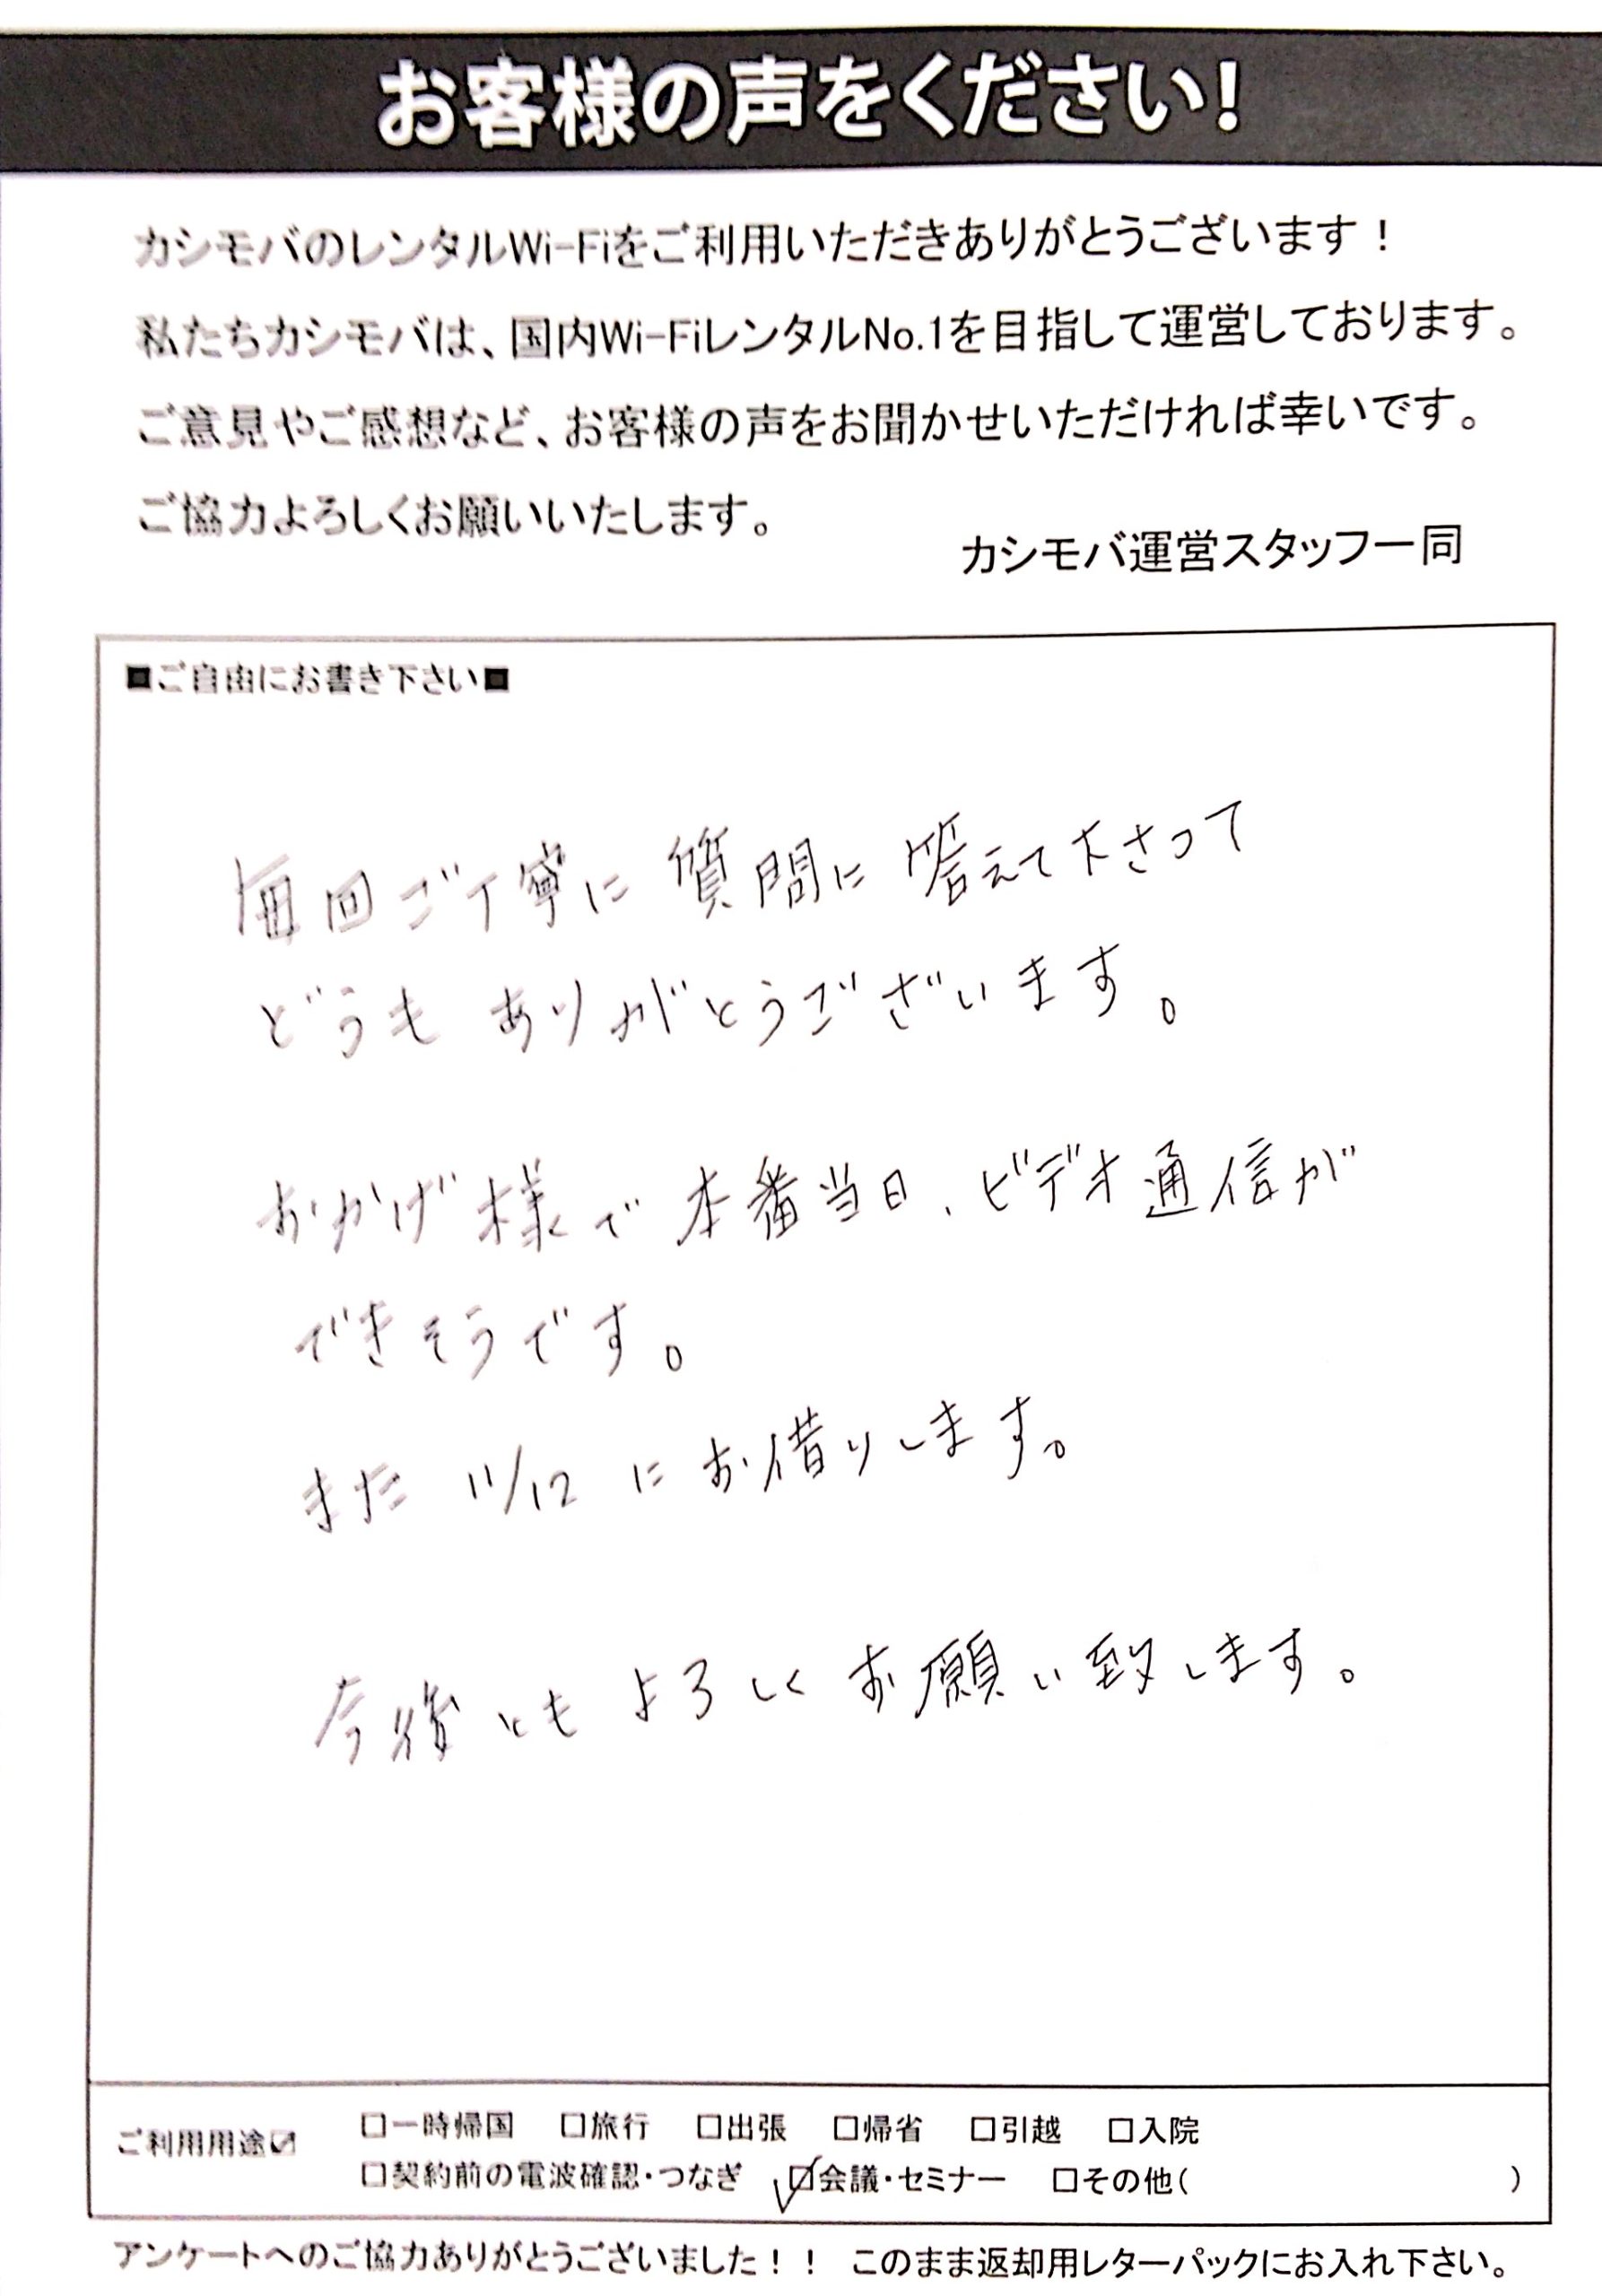 お客様の声をください!
カシモバのレンタルWi-Fiをご利用いただきありがとうございます！
私たちカシモバは、国内Wi-FiレンタルNo.1を目指して運営しております。
ご意見やご感想など、お客様の声をお聞かせいただければ幸いです。
ご協力よろしくお願いいたします。
カシモバ運営スタッフ一同
■ご自由にお書き下さい■
毎回ご丁寧に質問に答えて下さって
どうもありがとうございます。
おかげ様で本番当日、ビデオ通信が
できそうです。
また 11/12 にお借りします。
今後ともよろしくお願い致します。
ご利用用途☑ □一時帰国 □旅行 □出張 □帰省 □引越 □入院
□契約前の電波確認・つなぎ ☑会議・セミナー □その他( )
アンケートへのご協力ありがとうございました！！ このまま返却用レターパックにお入れ下さい。